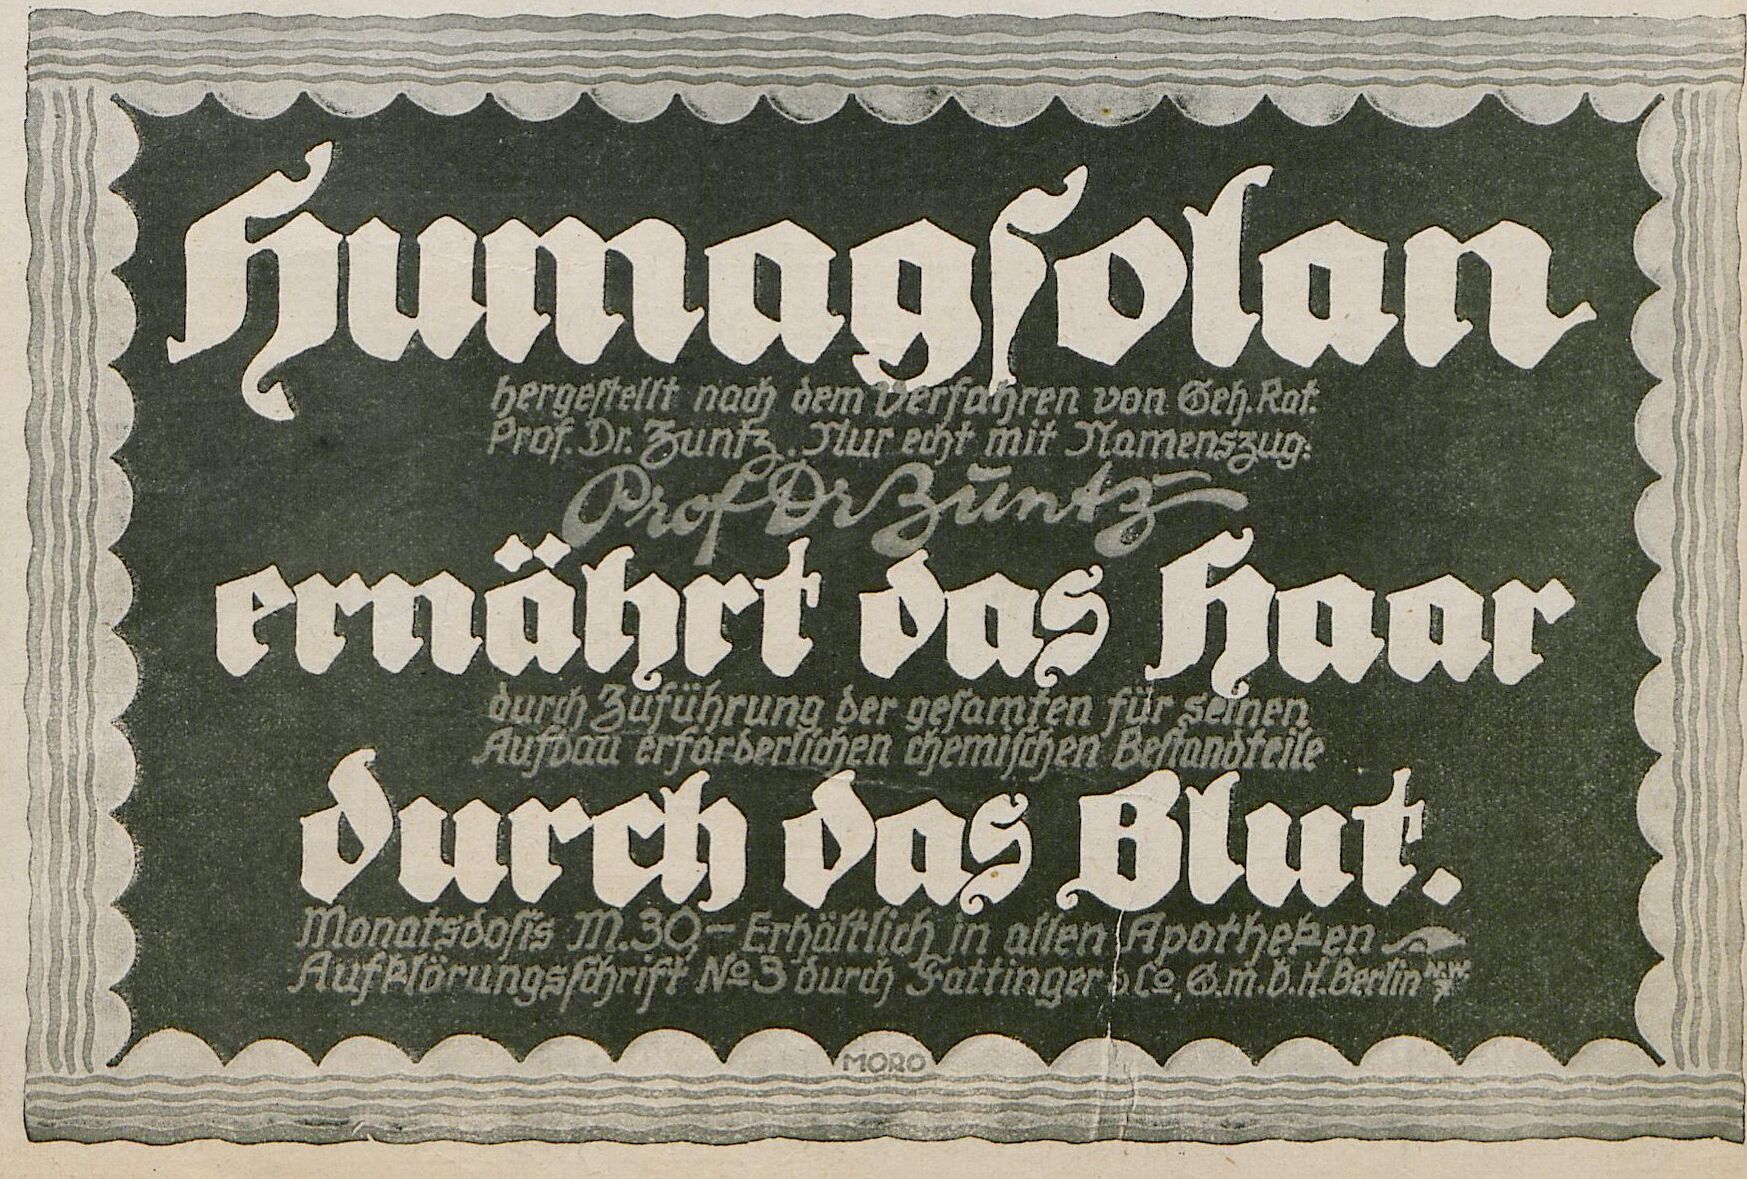 Humagsolan
hergestellt nach dem Verfahren von Geh. Rat.
Prof. Dr. Zuntz. Nur echt mit Namenszug:
Prof Dr Zuntz
ernährt das Haar
durch Zuführung der gesamten für seinen
Aufbau erforderlichen chemischen Bestandteile
durch das Blut.
Monatsdosis M. 30,- Erhältlich in allen Apotheken
Aufklärungsschrift No 3 durch Fattinger & Co, G.m.b.H. Berlin N.W. 7
MORO